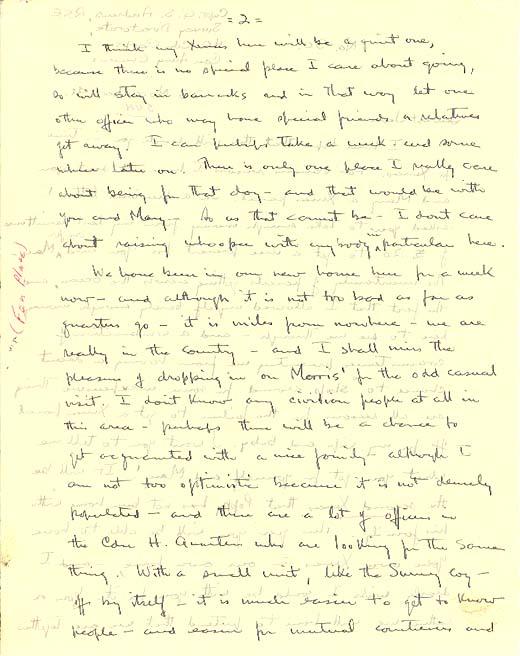 = 2 =
I think my Xmas here will be a quiet one,
because there is no special place I care about going,
so will stay in barracks and in that way let one
other officer who may have special friends or relatives
get away. I can perhaps take a week-end some
where later on. There is only one place I really care
about being for that day - and that would be with
you and Mary - So as that cannot be - I dont care
about raising whoopee with anybody in particular here.
We have been in our new home here for a week
now - and although it is not too bad as far as
quarters go - it is miles from nowhere - we are
really in the country - and I shall miss the
pleasure of dropping in on Morris' for the odd casual
visit. I don't know any civilian people at all in
this area - perhaps there will be a chance to
get acquainted with a nice family - although I
am not too optimistic because it is not densely
populated - and there are a lot of officers in
the Cdn H. Quarters who are looking for the same
thing. With a small unit, like the Survey coy -
off by itself - it is much easier to get to know
people - and easier for mutual courtesies and
(Fen Place)